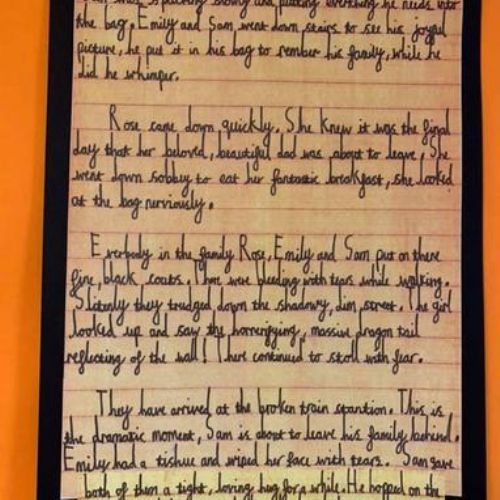 slowly and putting everything he needs into
the bag. Emily and Sam went down stairs to see his joyful
picture, he put it in his bag to rember his family, while he
did he whimper.
Rose came down quickly. She knew it was the final
day that her beloved, beautiful dad was about to leave, She
went down sobbey to eat her fantastic breakfast, she looked
at the bag nerviously.
Everbody in the family Rose, Emily and Sam put on there
fine, black coats. There were bleeding with tears while walking.
Slitenly they trudged down the shadowy, dim street. The girl
looked up and saw the horrenfying, massive dragon tail
reflecting of the wall! There continued to stoll with fear.
They have arrived at the broken train stantion. This is
the dramatic moment, Sam is about to leave his family behind.
Emily had a tishue and wiped her face with tears. Sam gave
both of them a tight, loving hug for a while. He hopped on the